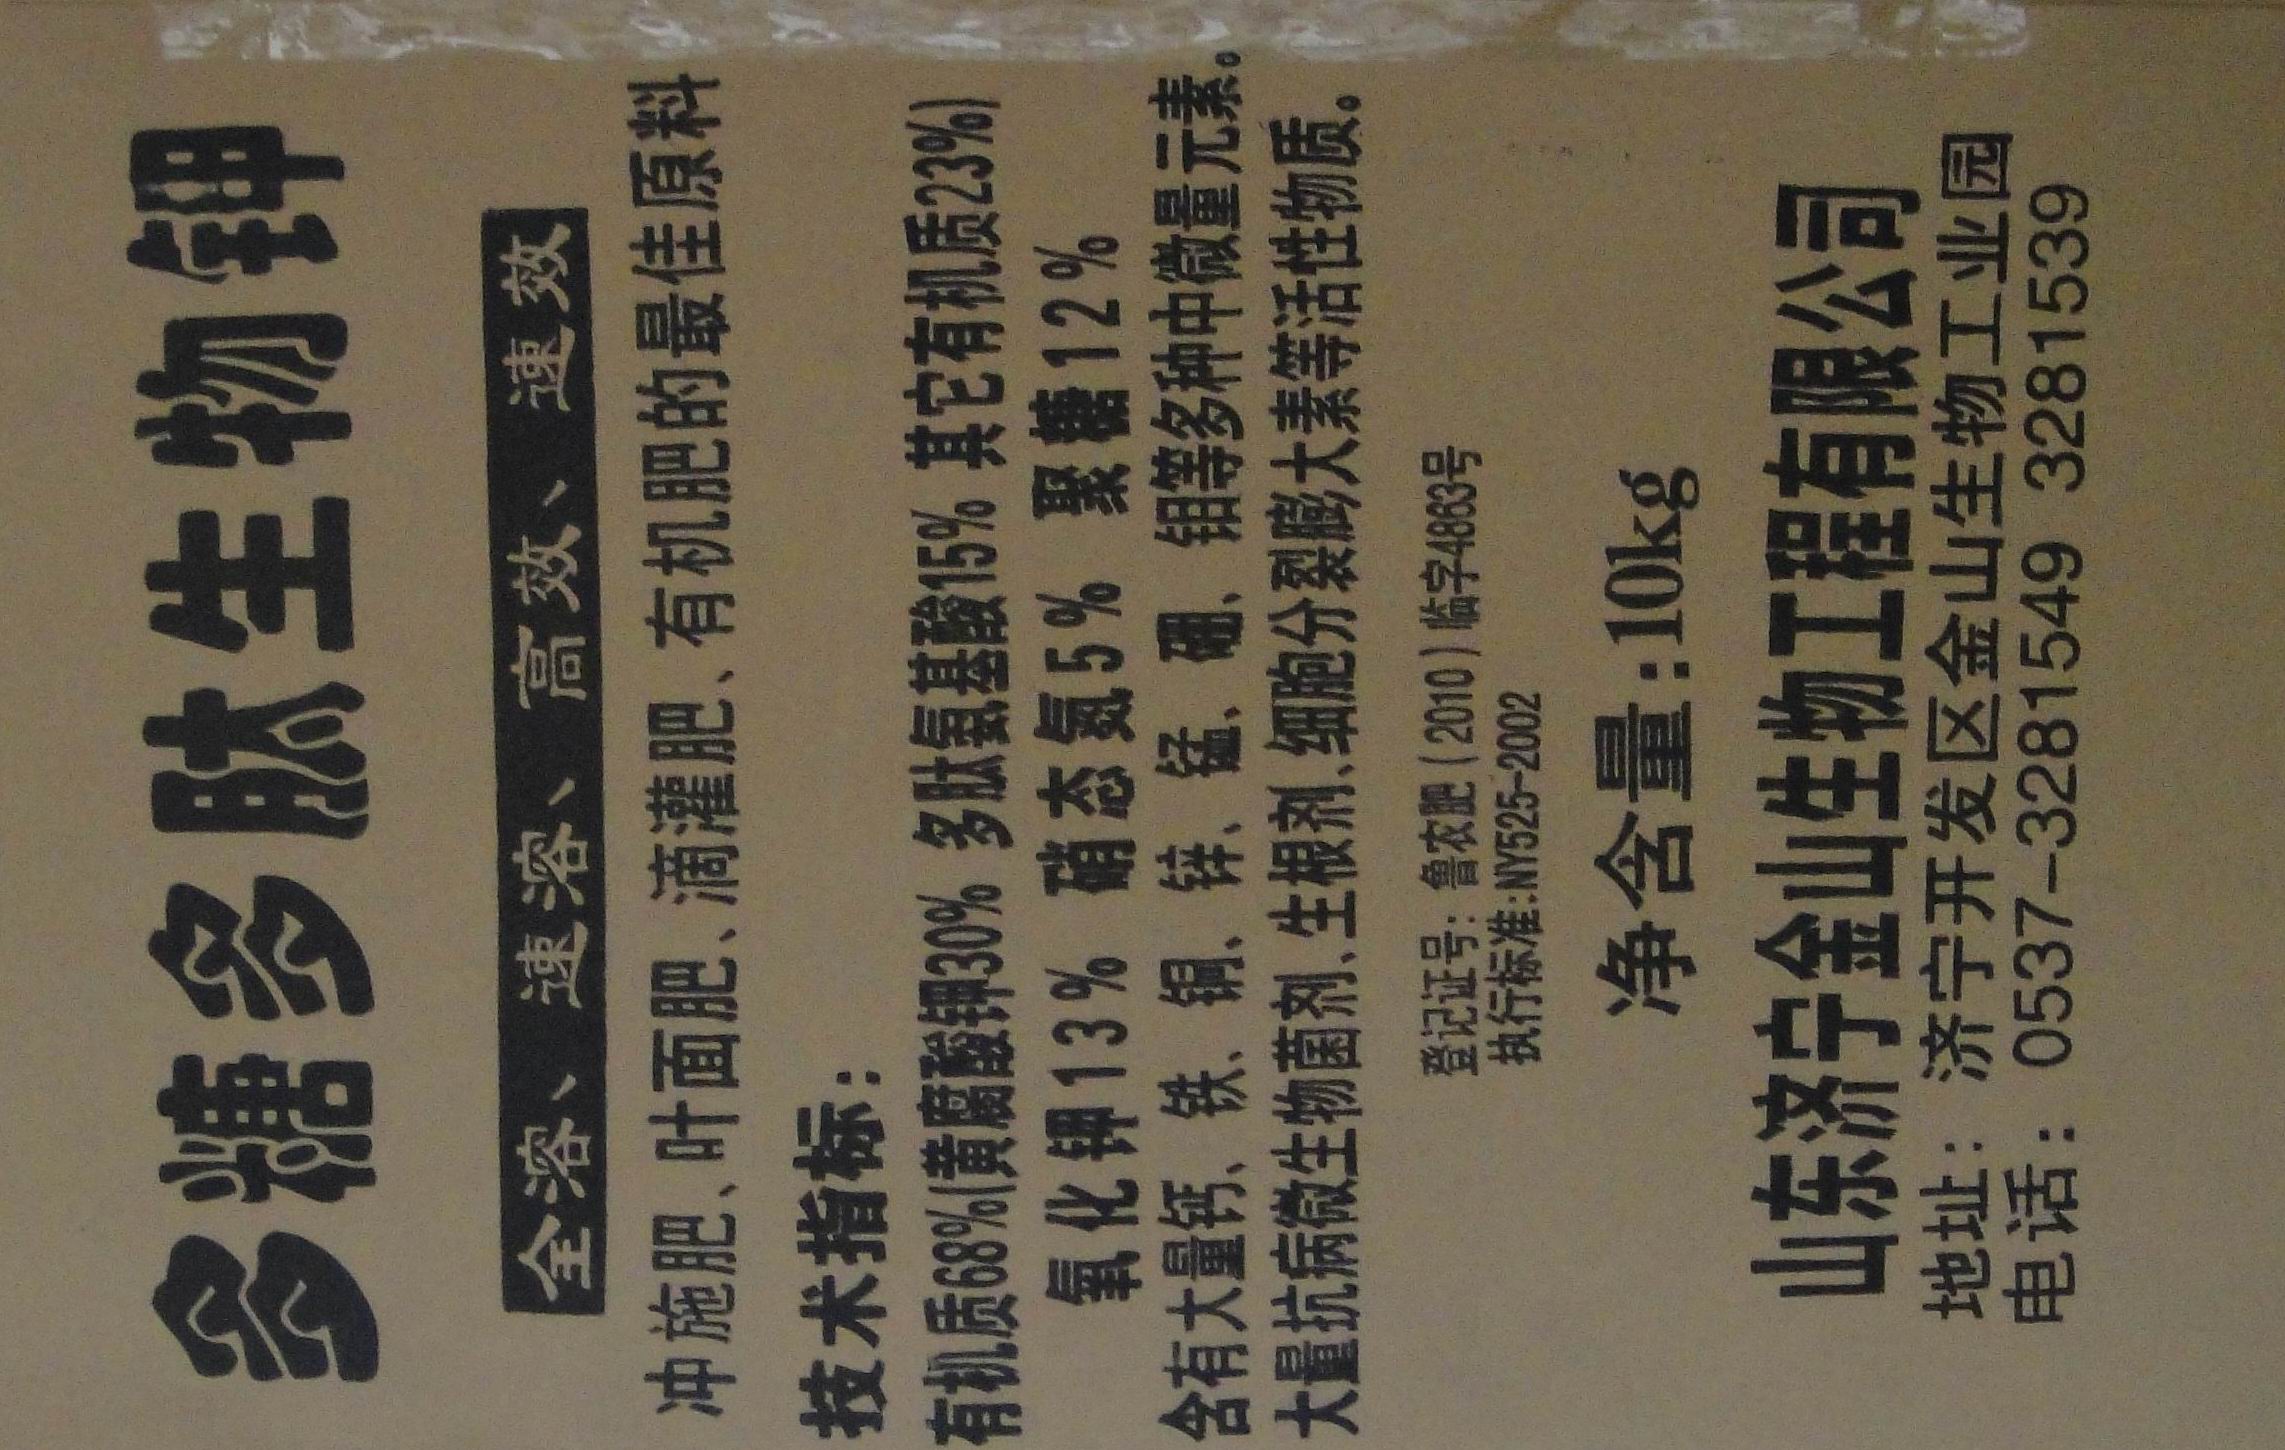 多糖多肽生物钾
全溶、速溶、高效、速效
冲施肥、叶面肥、滴灌肥、有机肥的最佳原料
技术指标：
有机质68%(黄腐酸钾30% 多肽氨基酸15% 其它有机质23%)
氧化钾13% 硝态氮5% 聚糖12%
含有大量钙、铁、铜、锌、锰、硼、钼等多种中微量元素。
大量抗病微生物菌剂、生根剂、细胞分裂膨大素等活性物质。
登记证号：鲁农肥(2010)临字4863号
执行标准:NY525-2002
净含量:10kg
山东济宁金山生物工程有限公司
地址：济宁开发区金山生物工业园
电话：0537-3281549 3281539